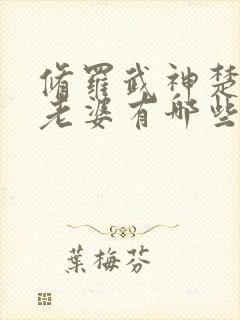 脩羅武神楚
老婆有哪些
葉梅芬